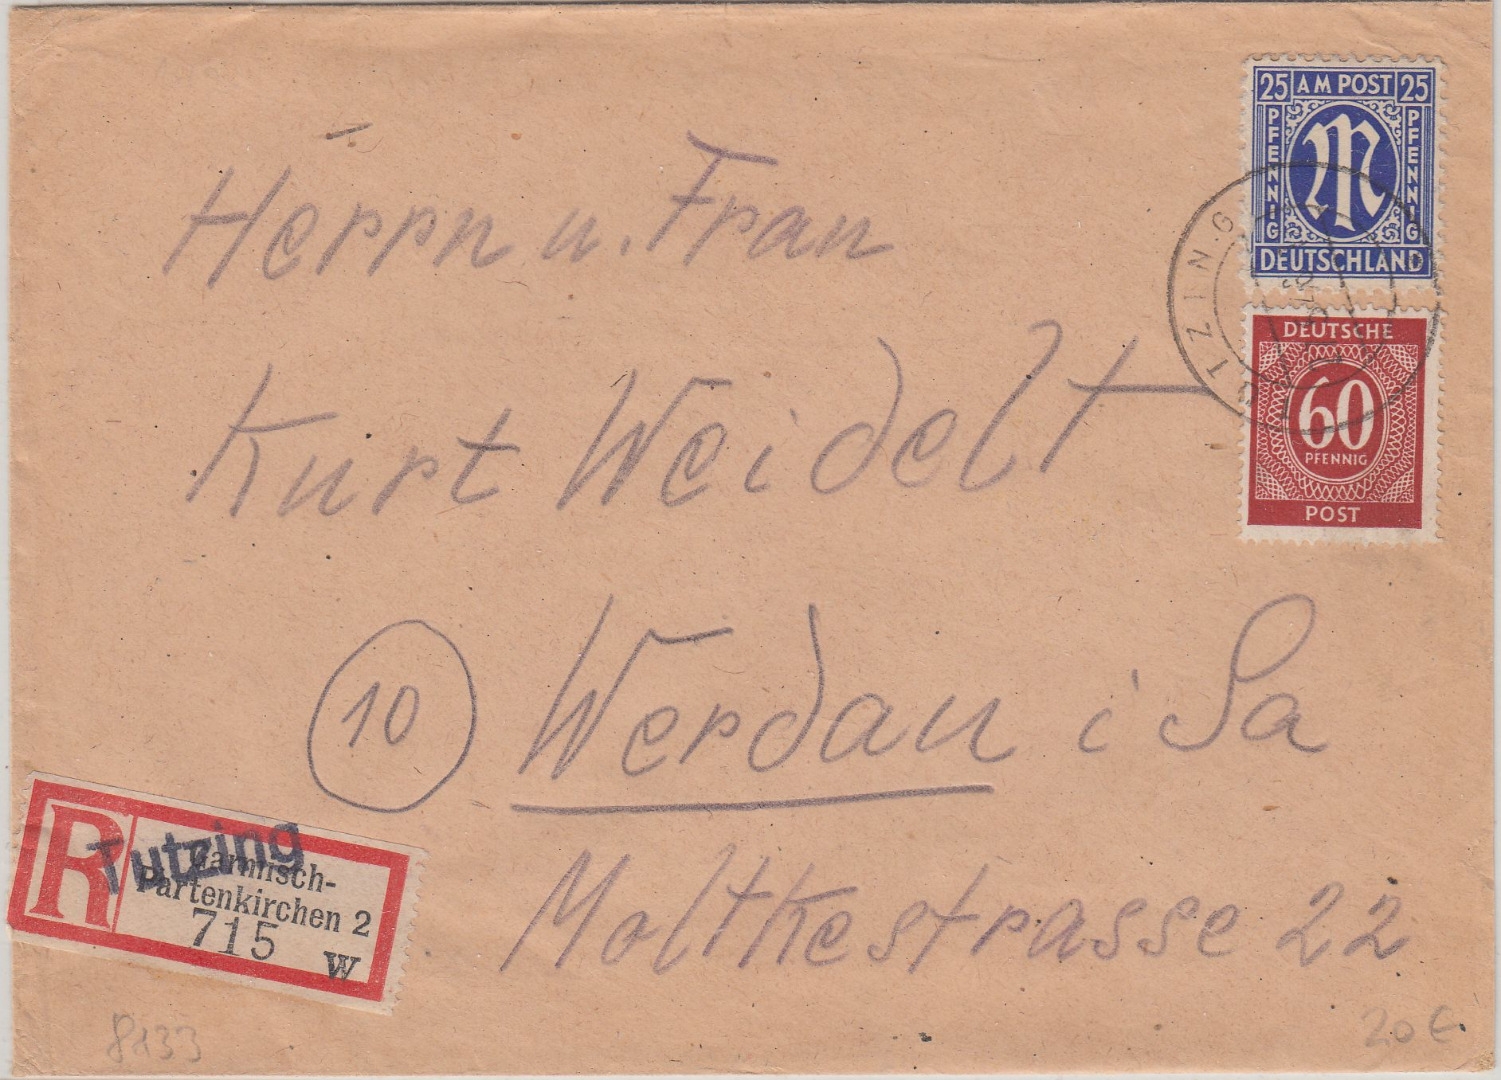 25 AM POST 25
PFENNIG
PFENNIG
DEUTSCHLAND
TUTZING
DEUTSCHE
60
PFENNIG
POST
Herrn u. Frau
Kurt Weidelt
10 Werdau i Sa
Moltkestrasse 22
R
Tutzing
Garmisch-
Partenkirchen 2
715
W
8133
20 €